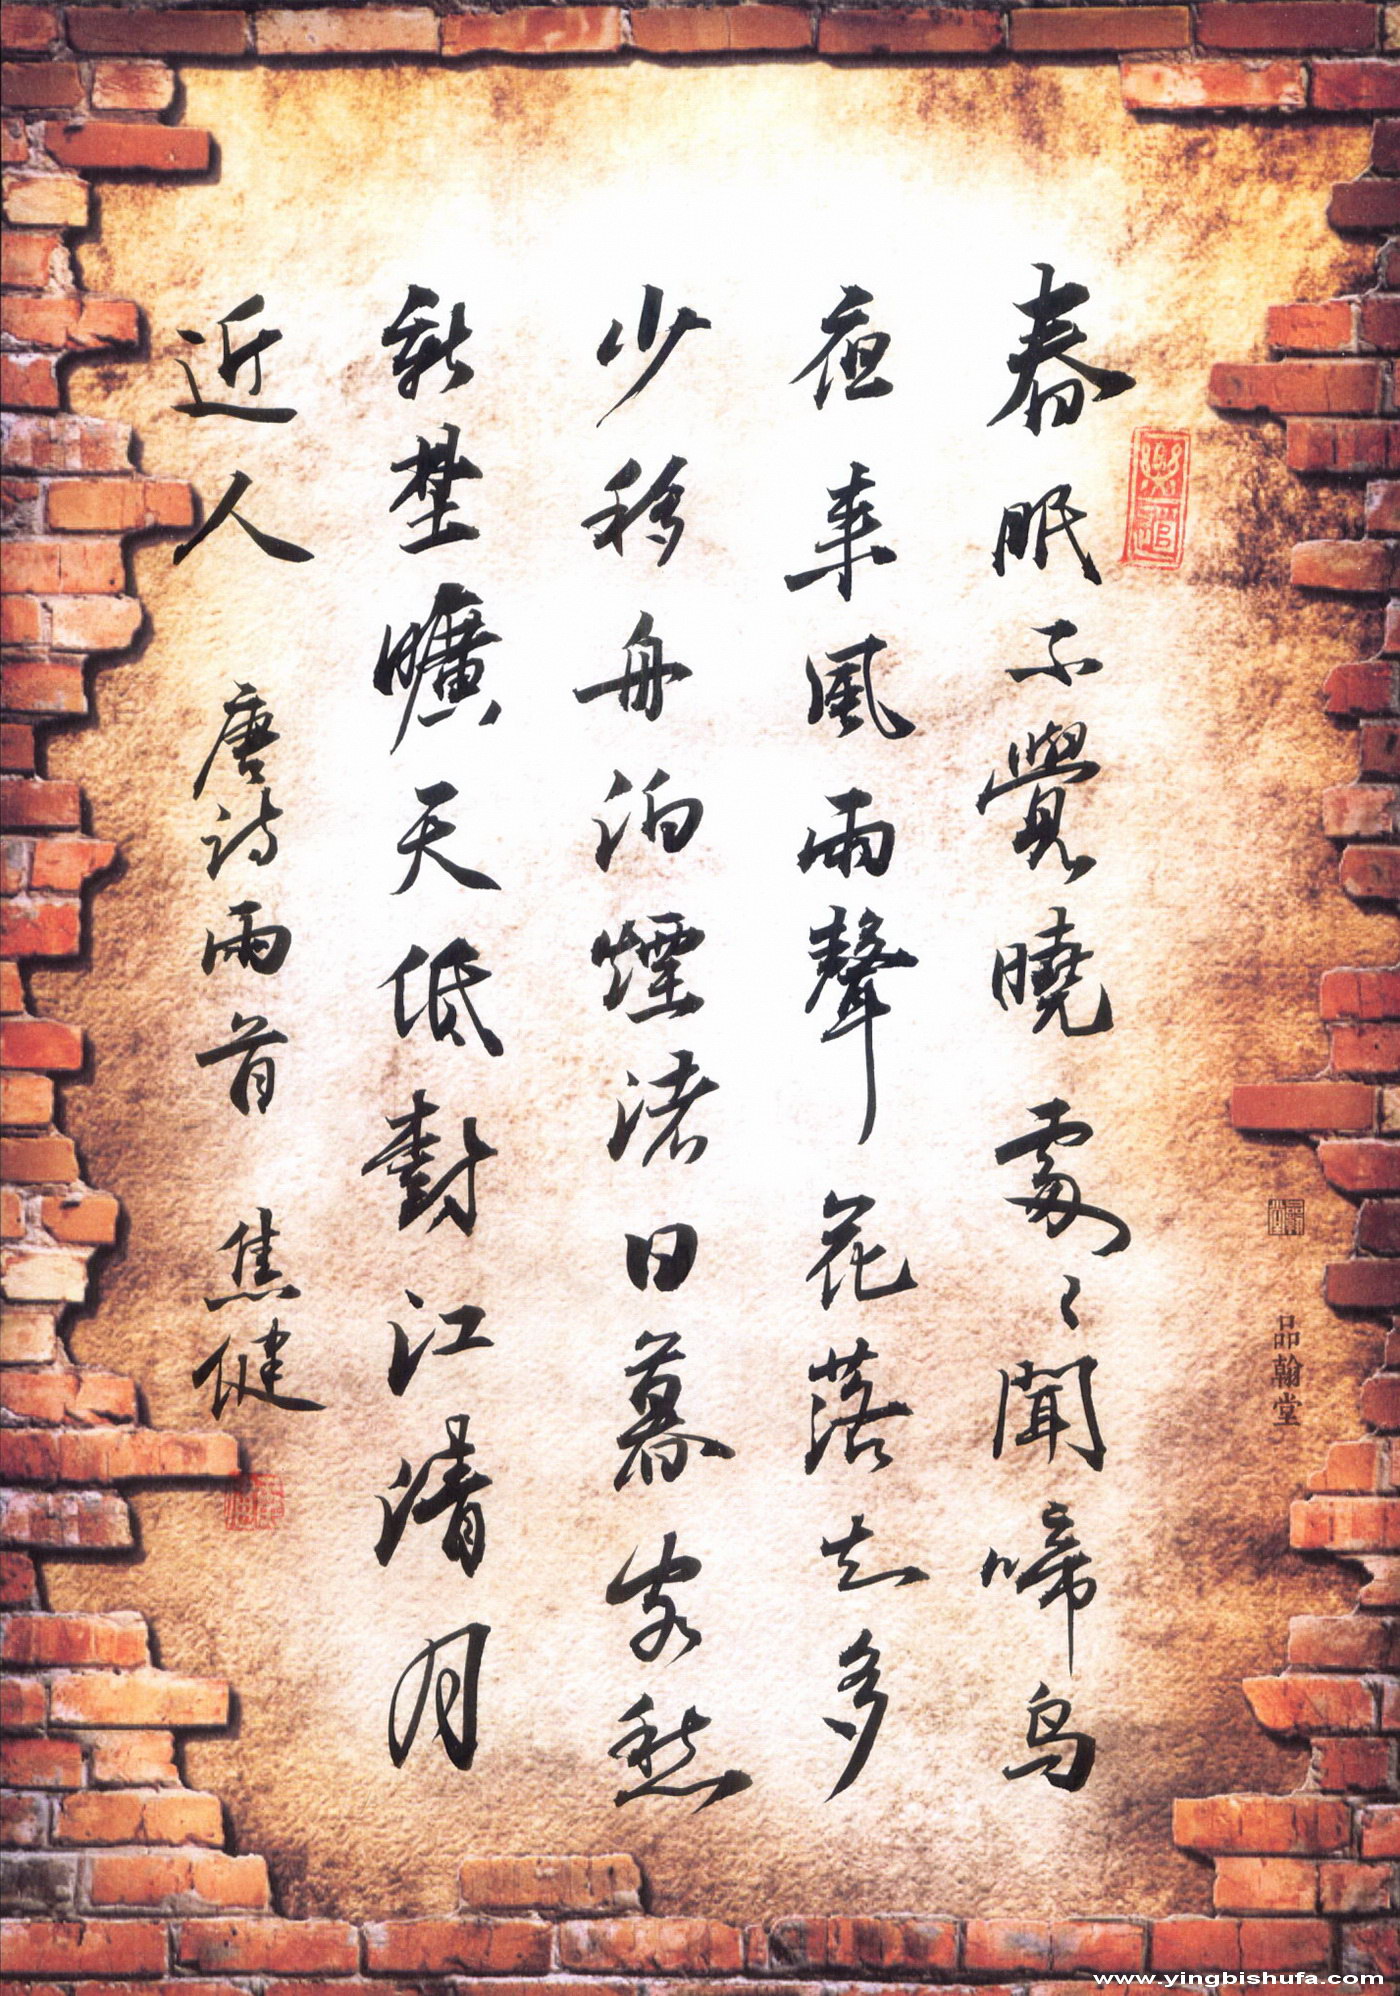 春眠不覺曉處々聞啼鳥
夜来風雨聲花落知多
少移舟泊煙渚日暮客愁
新埜曠天低對江清月
近人 唐詩兩首 焦健
品翰堂
www.yingbishufa.com